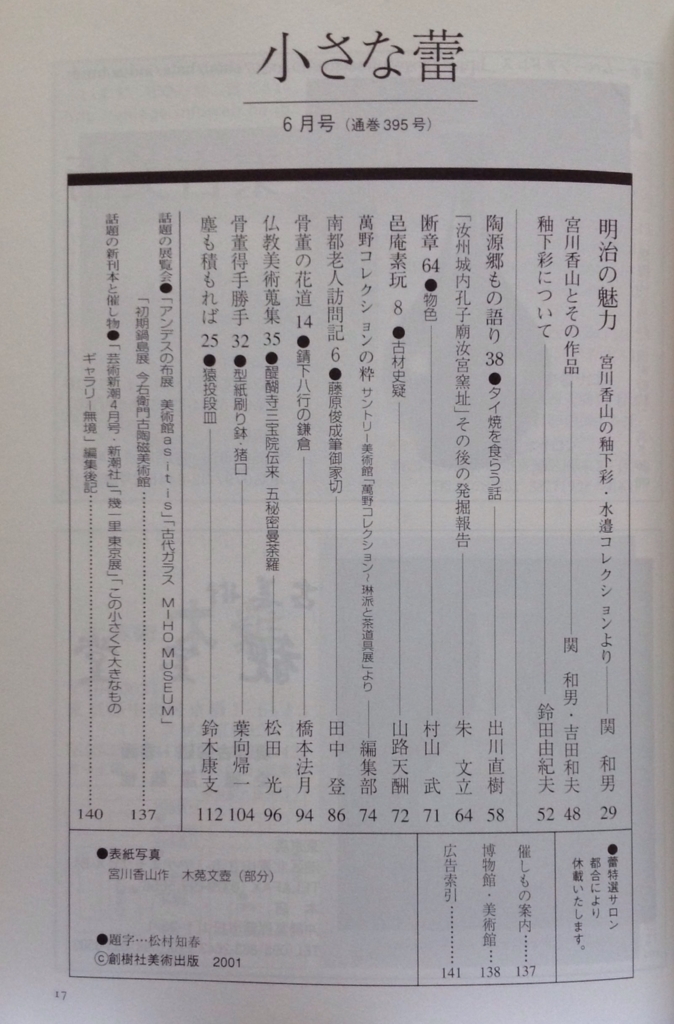 小さな蕾
6月号（通巻395号）
明治の魅力　宮川香山の釉下彩・水邉コレクションより　関　和男　29
宮川香山とその作品　関　和男・吉田和夫　48
釉下彩について　鈴田由紀夫　52
陶源郷もの語り　38●タイ焼を食らう話　出川直樹　58
「汝州城内孔子廟汝官窯址」その後の発掘報告　朱　文立　64
断章　64●物色　村山　武　71
邑庵素玩　8●古材史疑　山路天酬　72
萬野コレクションの粋　サントリー美術館「萬野コレクション～琳派と茶道具展」より　編集部　74
南都老人訪問記　6●藤原俊成筆御家切　田中　登　86
骨董の花道　14●錆下八行の鎌倉　橋本法月　94
仏教美術蒐集　35●醍醐寺三宝院伝来　五秘密曼荼羅　松田　光　96
骨董得手勝手　32●型紙刷り鉢・猪口　葉向帰一　104
塵も積もれば　25●猿投段皿　鈴木康支　112
話題の展覧会●「アンデスの布展　美術館as it is」「古代ガラス　MIHO MUSEUM」
「初期鍋島展　今右衛門古陶磁美術館………137
話題の新刊本と催し物●「芸術新潮4月号・新潮社」「幾一里 東京展」「この小さくて大きなもの
ギャラリー無境」編集後記………140
●蕾特選サロン
都合により
休載いたします。
催しもの案内………137
博物館・美術館………138
広告索引………141
●表紙写真
宮川香山作　木蒐文壺（部分）
●題字…松村知春
Ⓒ創樹社美術出版　2001
17